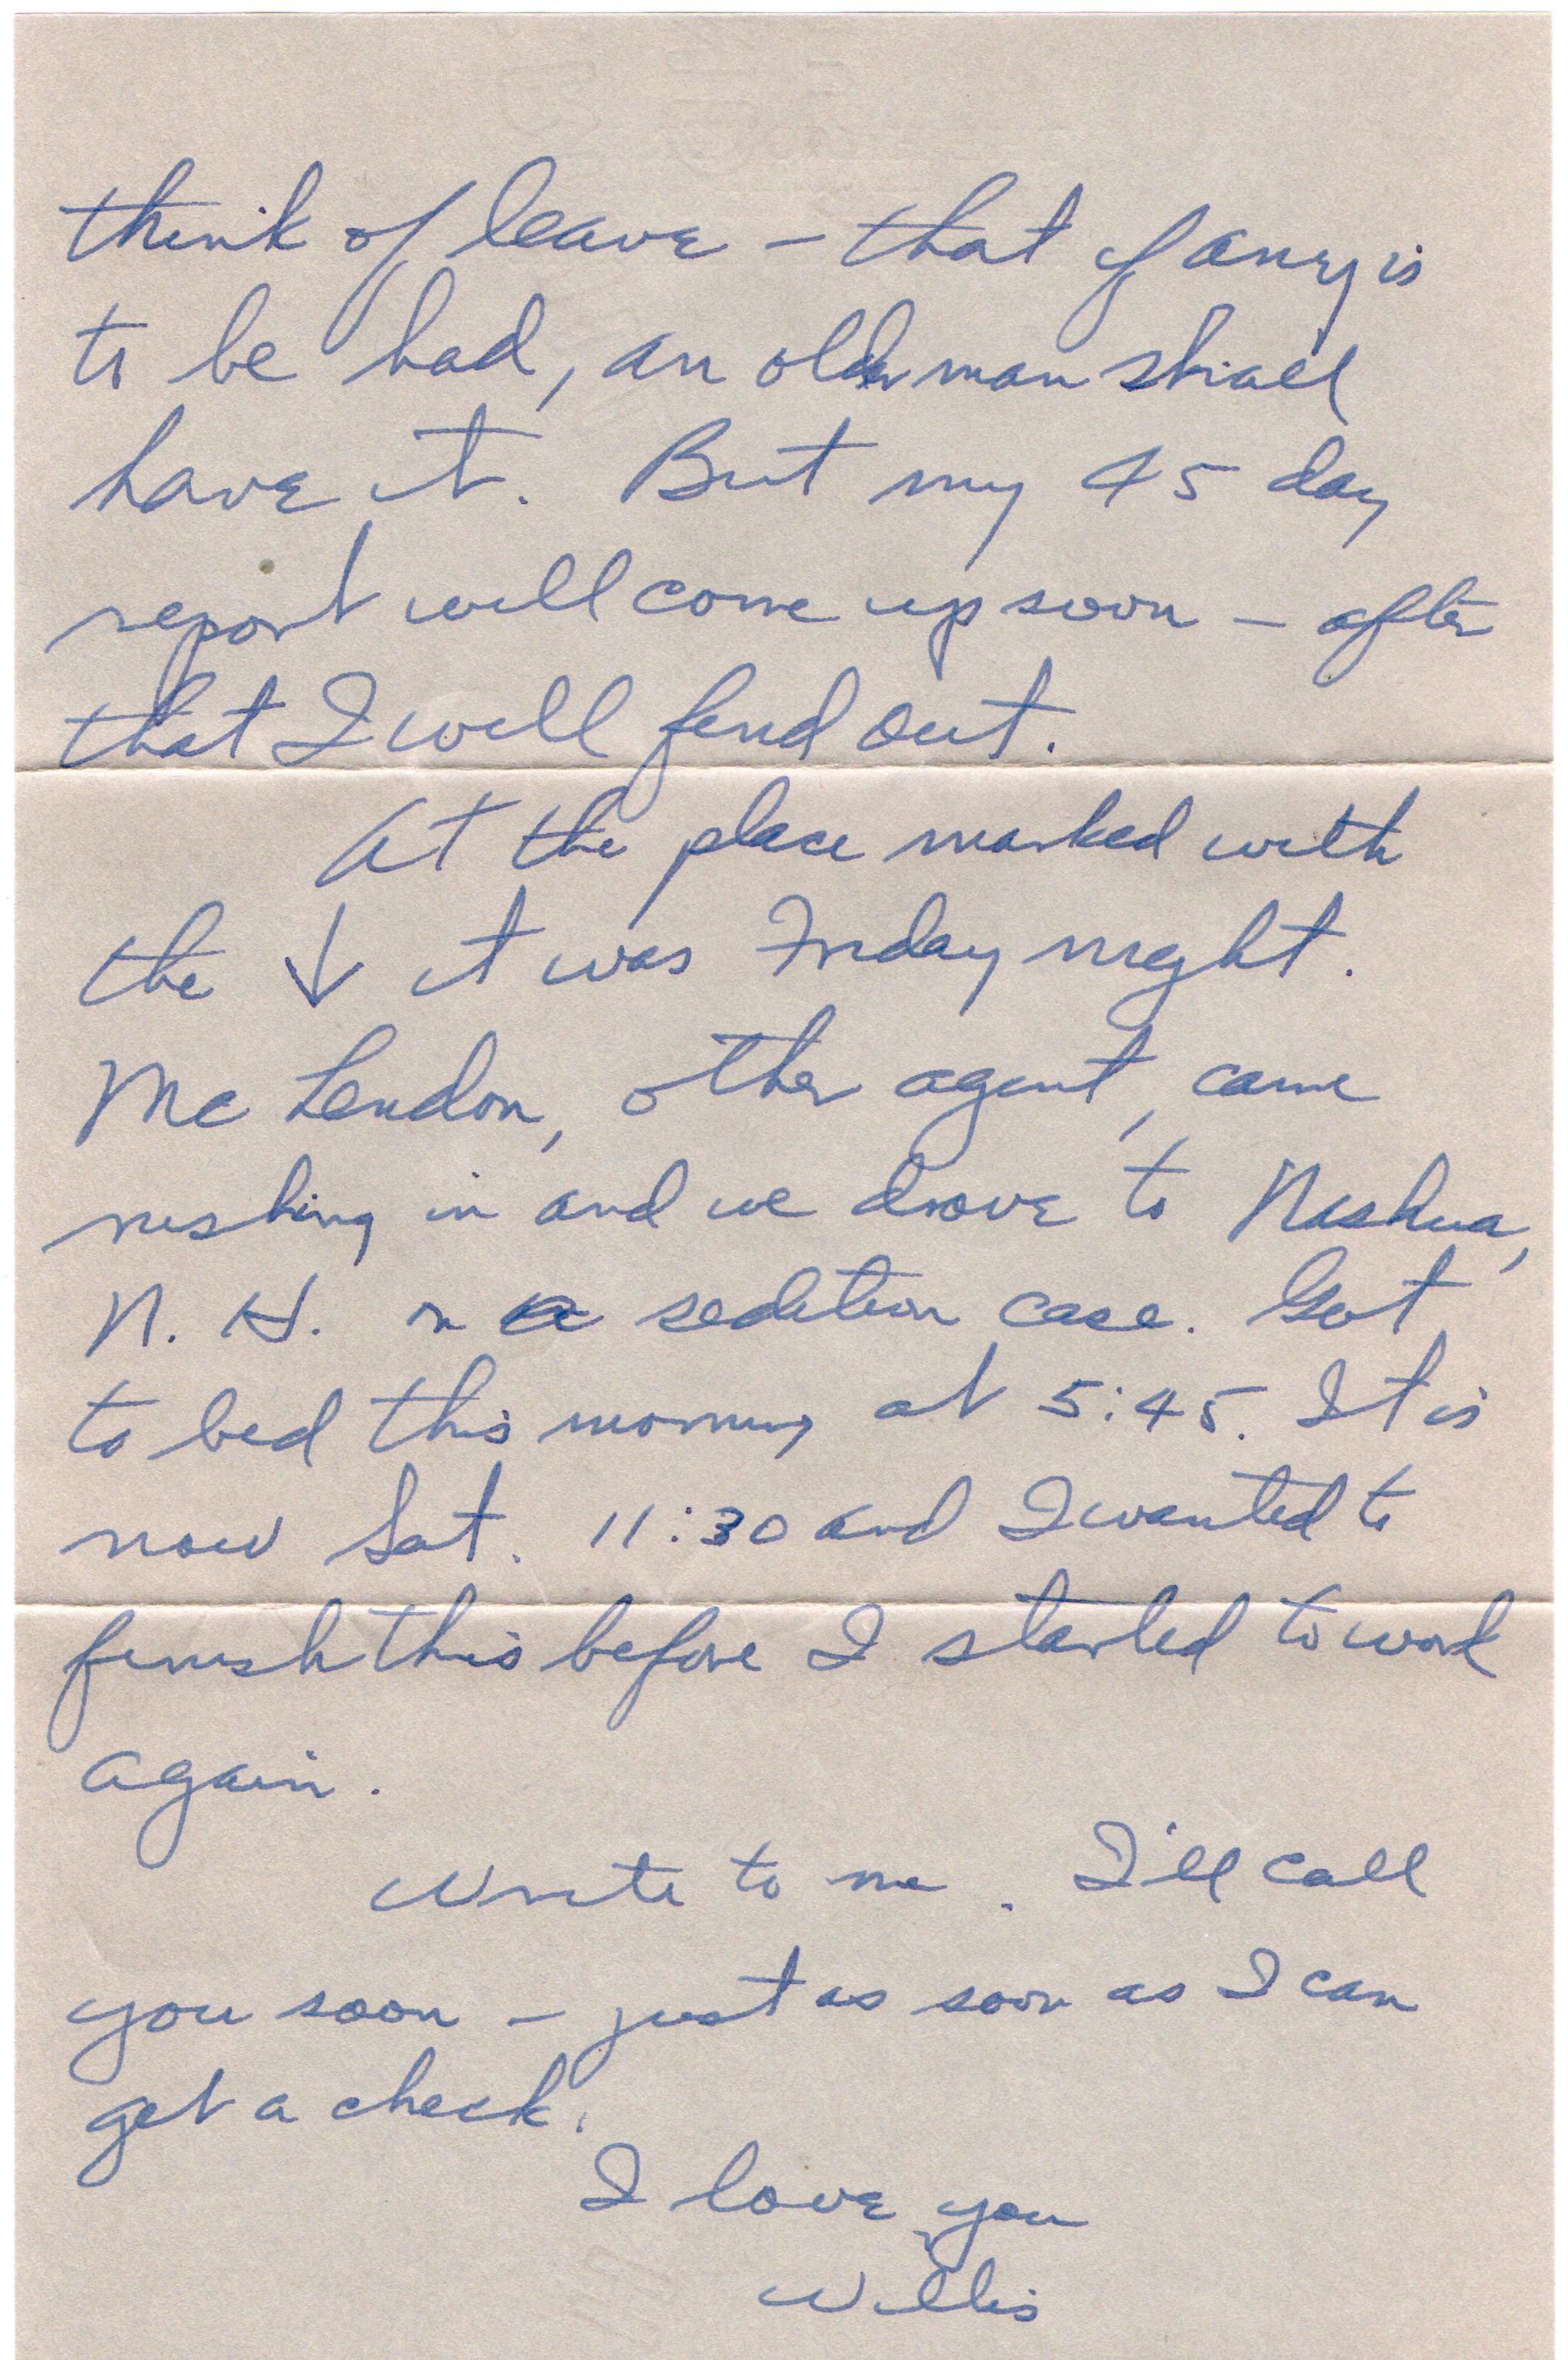 think of leave – that if any is
to be had, an older man shall
have it. But my 45 day
report will come up soon – after
that I will find out.
At the place marked with
the ↓ it was Friday night.
Mc Lendon, other agent, came
rushing in and we drove to Nashua,
N. H. on a sedition case. Got
to bed this morning at 5:45. It is
now Sat. 11:30 and I wanted to
finish this before I started to work
again.
Write to me. I'll call
you soon – just as soon as I can
get a check.
I love you
Willis